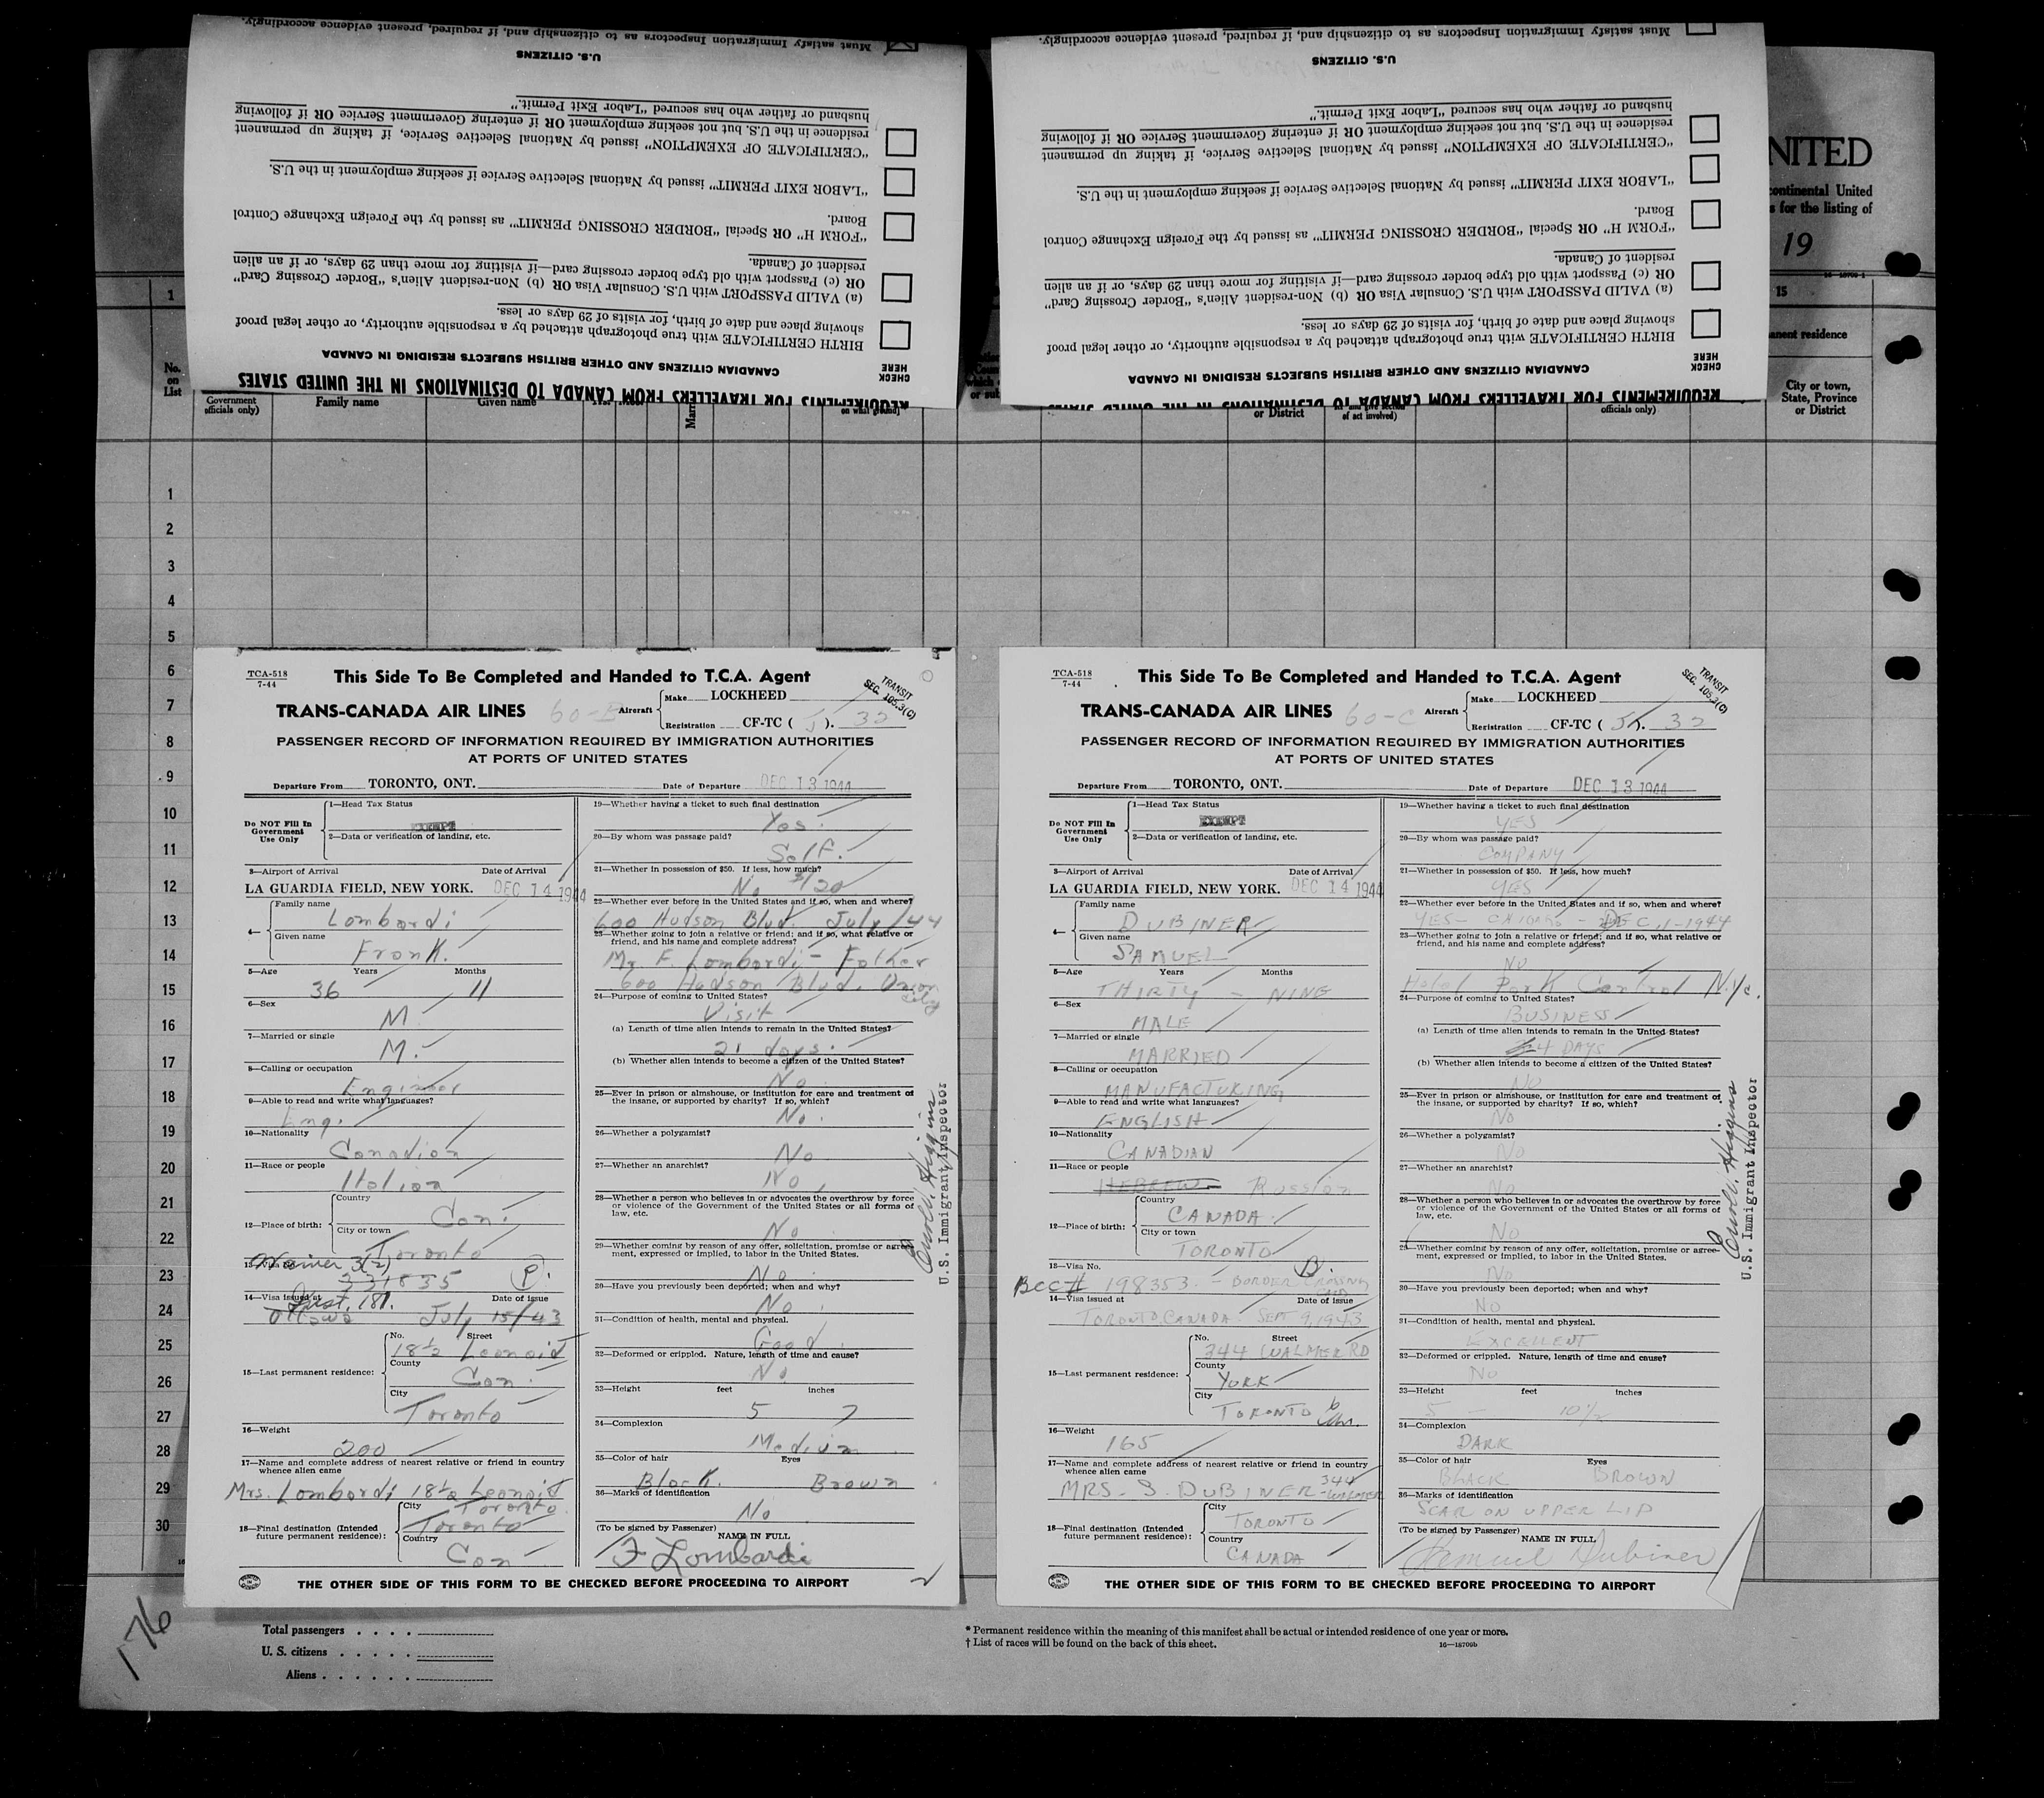 Must satisfy Immigration Inspectors as to citizenship and, if required, present evidence accordingly.
U.S. CITIZENS
"CERTIFICATE OF EXEMPTION" issued by National Selective Service, if taking up permanent
residence in the U.S. but not seeking employment OR if entering Government Service OR if following
husband or father who has secured "Labor Exit Permit."
"LABOR EXIT PERMIT" issued by National Selective Service if seeking employment in the U.S.
"FORM H" OR Special "BORDER CROSSING PERMIT" as issued by the Foreign Exchange Control
Board.
(a) VALID PASSPORT with U.S. Consular Visa OR (b) Non-resident Alien's "Border Crossing Card"
OR (c) Passport with old type border crossing card—if visiting for more than 29 days, or if an alien
resident of Canada.
BIRTH CERTIFICATE with true photograph attached by a responsible authority, or other legal proof
showing place and date of birth, for visits of 29 days or less.
CHECK
HERE
CANADIAN CITIZENS AND OTHER BRITISH SUBJECTS RESIDING IN CANADA
REQUIREMENTS FOR TRAVELLERS FROM CANADA TO DESTINATIONS IN THE UNITED STATES
Must satisfy Immigration Inspectors as to citizenship and, if required, present evidence accordingly.
U.S. CITIZENS
"CERTIFICATE OF EXEMPTION" issued by National Selective Service, if taking up permanent
residence in the U.S. but not seeking employment OR if entering Government Service OR if following
husband or father who has secured "Labor Exit Permit."
"LABOR EXIT PERMIT" issued by National Selective Service if seeking employment in the U.S.
"FORM H" OR Special "BORDER CROSSING PERMIT" as issued by the Foreign Exchange Control
Board.
(a) VALID PASSPORT with U.S. Consular Visa OR (b) Non-resident Alien's "Border Crossing Card"
OR (c) Passport with old type border crossing card—if visiting for more than 29 days, or if an alien
resident of Canada.
BIRTH CERTIFICATE with true photograph attached by a responsible authority, or other legal proof
showing place and date of birth, for visits of 29 days or less.
CHECK
HERE
CANADIAN CITIZENS AND OTHER BRITISH SUBJECTS RESIDING IN CANADA
REQUIREMENTS FOR TRAVELLERS FROM CANADA TO DESTINATIONS IN THE UNITED STATES
NITED
continental United
s for the listing of
19
15
anent residence
City or town,
State, Province
or District
1
No.
on
List
Government
officials only)
Family name
Given name
on what ground)
or District
of act involved)
officials only)
1
2
3
4
5
6
7
8
9
10
11
12
13
14
15
16
17
18
19
20
21
22
23
24
25
26
27
28
29
30
TCA-518
7-44
This Side To Be Completed and Handed to T.C.A. Agent
TRANSIT
SEC. 105.3(C)
TRANS-CANADA AIR LINES 60-B
Aircraft
Make LOCKHEED
Registration CF-TC ( J ). 32
PASSENGER RECORD OF INFORMATION REQUIRED BY IMMIGRATION AUTHORITIES
AT PORTS OF UNITED STATES
Departure From TORONTO, ONT. Date of Departure DEC 13 1944
Do NOT Fill In
Government
Use Only
1—Head Tax Status
EXEMPT
2—Data or verification of landing, etc.
3—Airport of Arrival Date of Arrival
LA GUARDIA FIELD, NEW YORK. DEC 14 1944
4—
Family name
Lombardi
Given name
Frank.
5—Age Years Months
36 11
6—Sex
M.
7—Married or single
M.
8—Calling or occupation
Engineer
9—Able to read and write what languages?
Eng.
10—Nationality
Canadian
11—Race or people
Italian
12—Place of birth:
Country
Can.
City or town
Toronto
13—Visa No.
Waiver 3(2)
331835 P.
14—Visa issued at Date of issue
Ottawa July 15/43
15—Last permanent residence:
No. Street
18½ Leonoid
County
Can.
City
Toronto
16—Weight
200
17—Name and complete address of nearest relative or friend in country
whence alien came
Mrs. Lombardi 18½ Leonoid
Toronto
18—Final destination (Intended
future permanent residence):
City
Toronto
Country
Can
19—Whether having a ticket to such final destination
Yes.
20—By whom was passage paid?
Self.
21—Whether in possession of $50. If less, how much?
No $20
22—Whether ever before in the United States and if so, when and where?
600 Hudson Blvd. July /44
23—Whether going to join a relative or friend; and if so, what relative or
friend, and his name and complete address?
Mr F. Lombardi - Father
600 Hudson Blvd. Union
City
24—Purpose of coming to United States?
Visit
(a) Length of time alien intends to remain in the United States?
21 days.
(b) Whether alien intends to become a citizen of the United States?
No
25—Ever in prison or almshouse, or institution for care and treatment of
the insane, or supported by charity? If so, which?
No.
26—Whether a polygamist?
No
27—Whether an anarchist?
No
28—Whether a person who believes in or advocates the overthrow by force
or violence of the Government of the United States or all forms of
law, etc.
No
29—Whether coming by reason of any offer, solicitation, promise or agree-
ment, expressed or implied, to labor in the United States.
No.
30—Have you previously been deported; when and why?
No
31—Condition of health, mental and physical.
Good
32—Deformed or crippled. Nature, length of time and cause?
No
33—Height feet inches
5 7
34—Complexion
Medium
35—Color of hair Eyes
Black. Brown
36—Marks of identification
No
(To be signed by Passenger)
NAME IN FULL
F Lombardi
U.S. Immigrant Inspector
THE OTHER SIDE OF THIS FORM TO BE CHECKED BEFORE PROCEEDING TO AIRPORT
TCA-518
7-44
This Side To Be Completed and Handed to T.C.A. Agent
TRANSIT
SEC. 105.3(C)
TRANS-CANADA AIR LINES 60-C
Aircraft
Make LOCKHEED
Registration CF-TC ( J ). 32
PASSENGER RECORD OF INFORMATION REQUIRED BY IMMIGRATION AUTHORITIES
AT PORTS OF UNITED STATES
Departure From TORONTO, ONT. Date of Departure DEC 13 1944
Do NOT Fill In
Government
Use Only
1—Head Tax Status
EXEMPT
2—Data or verification of landing, etc.
3—Airport of Arrival Date of Arrival
LA GUARDIA FIELD, NEW YORK. DEC 14 1944
4—
Family name
DUBINER
Given name
SAMUEL
5—Age Years Months
THIRTY - NINE
6—Sex
MALE
7—Married or single
MARRIED
8—Calling or occupation
MANUFACTURING
9—Able to read and write what languages?
ENGLISH
10—Nationality
CANADIAN
11—Race or people
HEBREW Russian
12—Place of birth:
Country
CANADA
City or town
TORONTO
13—Visa No. B.
BCC# 198353. - BORDER CROSSING
CARD
14—Visa issued at Date of issue
TORONTO, CANADA. SEPT 9, 1943
15—Last permanent residence:
No. Street
344 WALMER RD
County
YORK
City
TORONTO
16—Weight
165
17—Name and complete address of nearest relative or friend in country
whence alien came
MRS. S. DUBINER - 344 WALMER
18—Final destination (Intended
future permanent residence):
City
TORONTO
Country
CANADA
19—Whether having a ticket to such final destination
YES
20—By whom was passage paid?
COMPANY
21—Whether in possession of $50. If less, how much?
YES
22—Whether ever before in the United States and if so, when and where?
YES - CHICAGO - DEC, 1-1944
23—Whether going to join a relative or friend; and if so, what relative or
friend, and his name and complete address?
NO
Hotel Park Central N.Y.C.
24—Purpose of coming to United States?
BUSINESS
(a) Length of time alien intends to remain in the United States?
4 DAYS
(b) Whether alien intends to become a citizen of the United States?
NO
25—Ever in prison or almshouse, or institution for care and treatment of
the insane, or supported by charity? If so, which?
NO
26—Whether a polygamist?
NO
27—Whether an anarchist?
NO
28—Whether a person who believes in or advocates the overthrow by force
or violence of the Government of the United States or all forms of
law, etc.
NO
29—Whether coming by reason of any offer, solicitation, promise or agree-
ment, expressed or implied, to labor in the United States.
NO
30—Have you previously been deported; when and why?
NO
31—Condition of health, mental and physical.
EXCELLENT
32—Deformed or crippled. Nature, length of time and cause?
NO
33—Height feet inches
5 - 10½
34—Complexion
DARK
35—Color of hair Eyes
BLACK BROWN
36—Marks of identification
SCAR ON UPPER LIP
(To be signed by Passenger)
NAME IN FULL
Samuel Dubiner
U.S. Immigrant Inspector
THE OTHER SIDE OF THIS FORM TO BE CHECKED BEFORE PROCEEDING TO AIRPORT
176
Total passengers
U. S. citizens
Aliens
* Permanent residence within the meaning of this manifest shall be actual or intended residence of one year or more.
† List of races will be found on the back of this sheet.
16—18709b